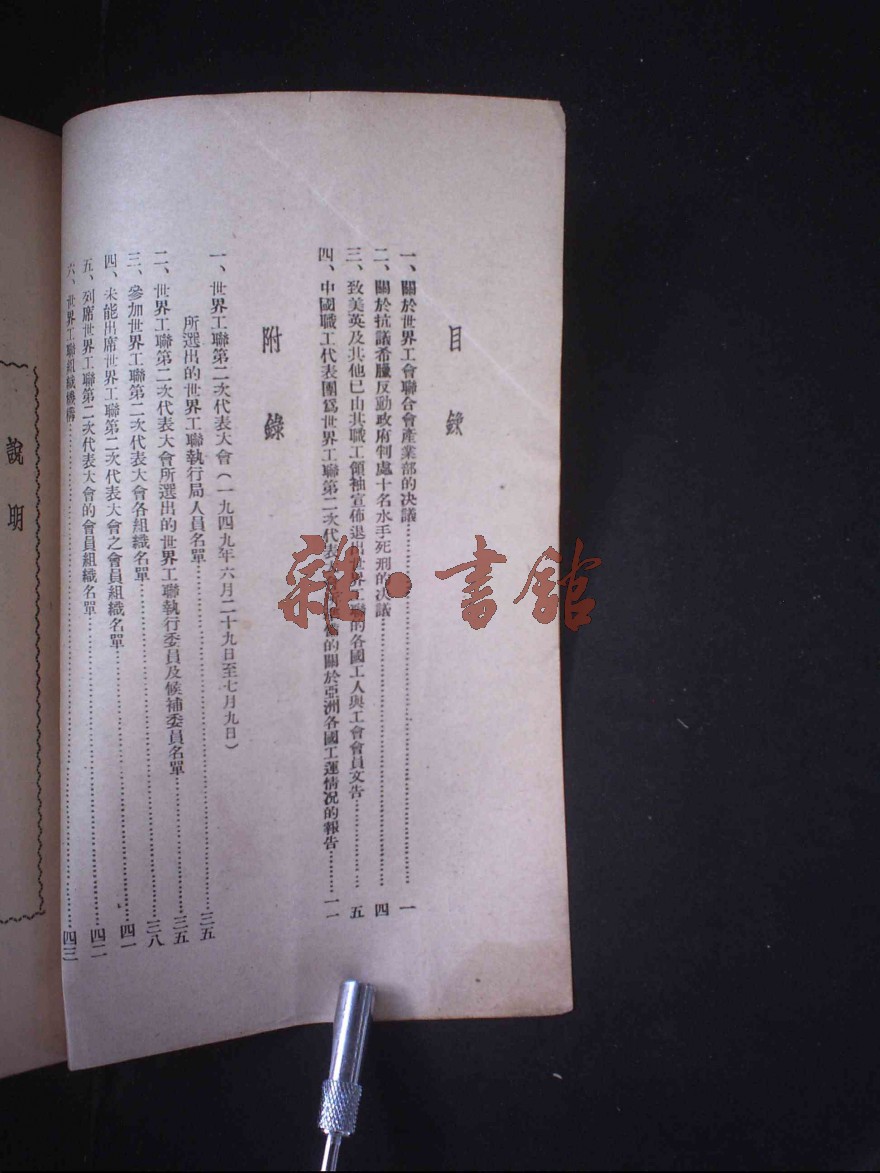 目錄
一、關於世界工會聯合會產業部的決議……一
二、關於抗議希臘反動政府判處十名水手死刑的決議……四
三、致美英及其他已由其職工領袖宣佈退出世界工聯的各國工人與工會會員文告……五
四、中國職工代表團爲世界工聯第二次代表的關於亞洲各國工運情况的報告……一一
附錄
一、世界工聯第二次代表大會(一九四九年六月二十九日至七月九日)
所選出的世界工聯執行局人員名單……三五
二、世界工聯第二次代表大會所選出的世界工聯執行委員及候補委員名單……三五
三、參加世界工聯第二次代表大會各組織名單……三八
四、未能出席世界工聯第二次代表大會之會員組織名單……四一
五、列席世界工聯第二次代表大會的會員組織名單……四二
六、世界工聯組織機構……四三
說明
雜·書館